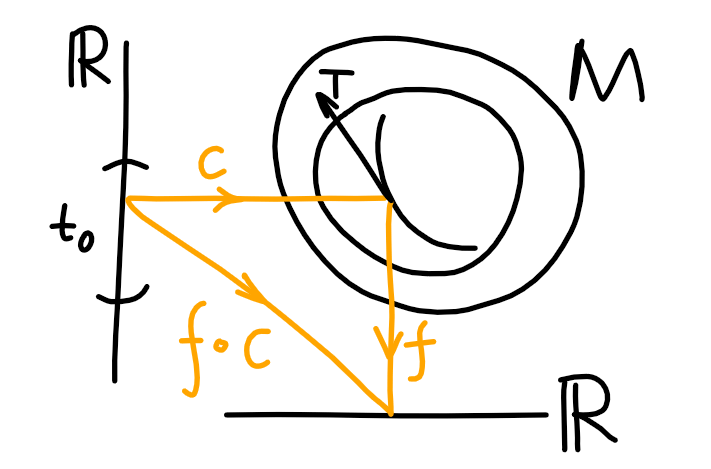 ℝ
M
T
c
t₀
f∘c
f
ℝ